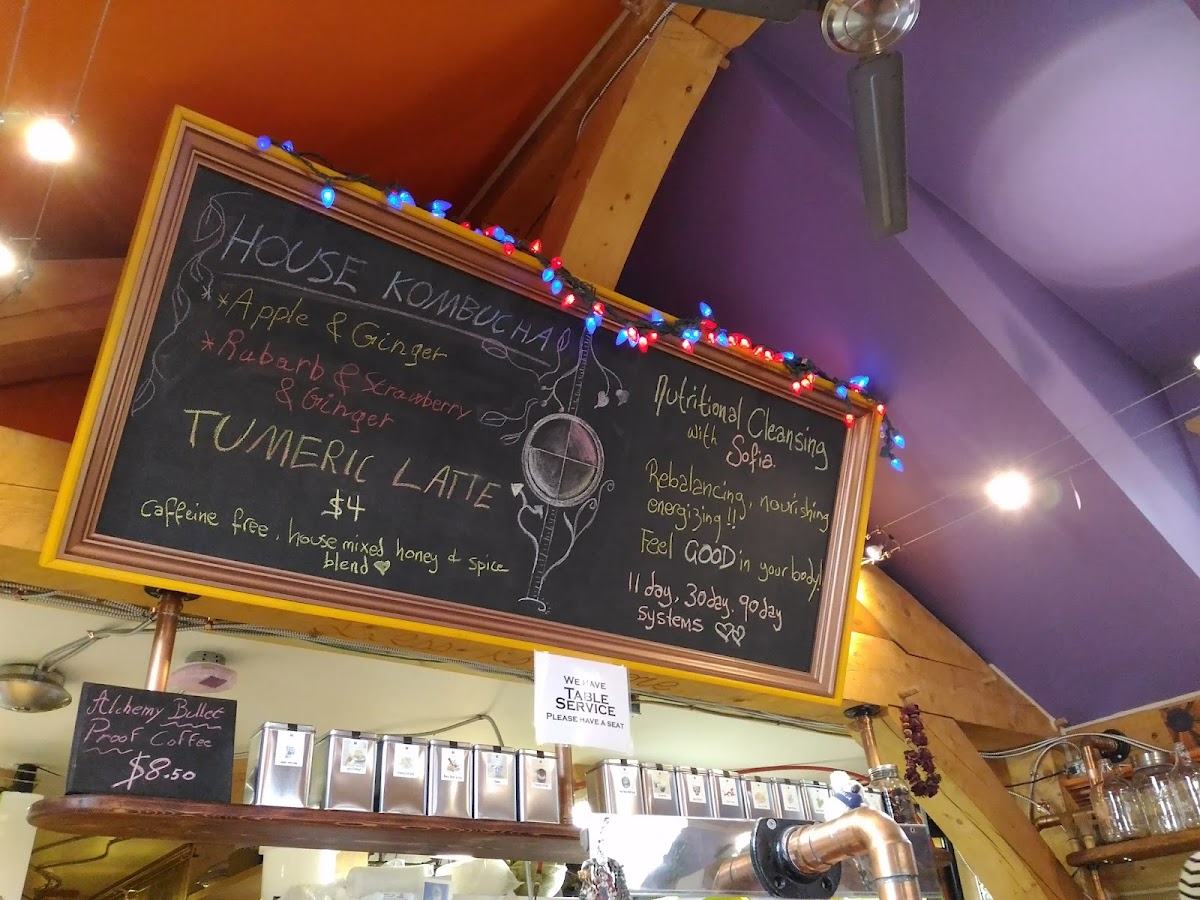 HOUSE KOMBUCHA
*Apple & Ginger
*Rubarb & Strawberry
& Ginger
TUMERIC LATTE
$4
caffeine free, house mixed honey & spice
blend
Nutritional Cleansing
with Sofia.
Rebalancing, nourishing
energizing!!
Feel GOOD in your body!
11 day, 30day. 90day
systems
WE HAVE
TABLE
SERVICE
PLEASE HAVE A SEAT
Alchemy Bullet
Proof Coffee
$8.50